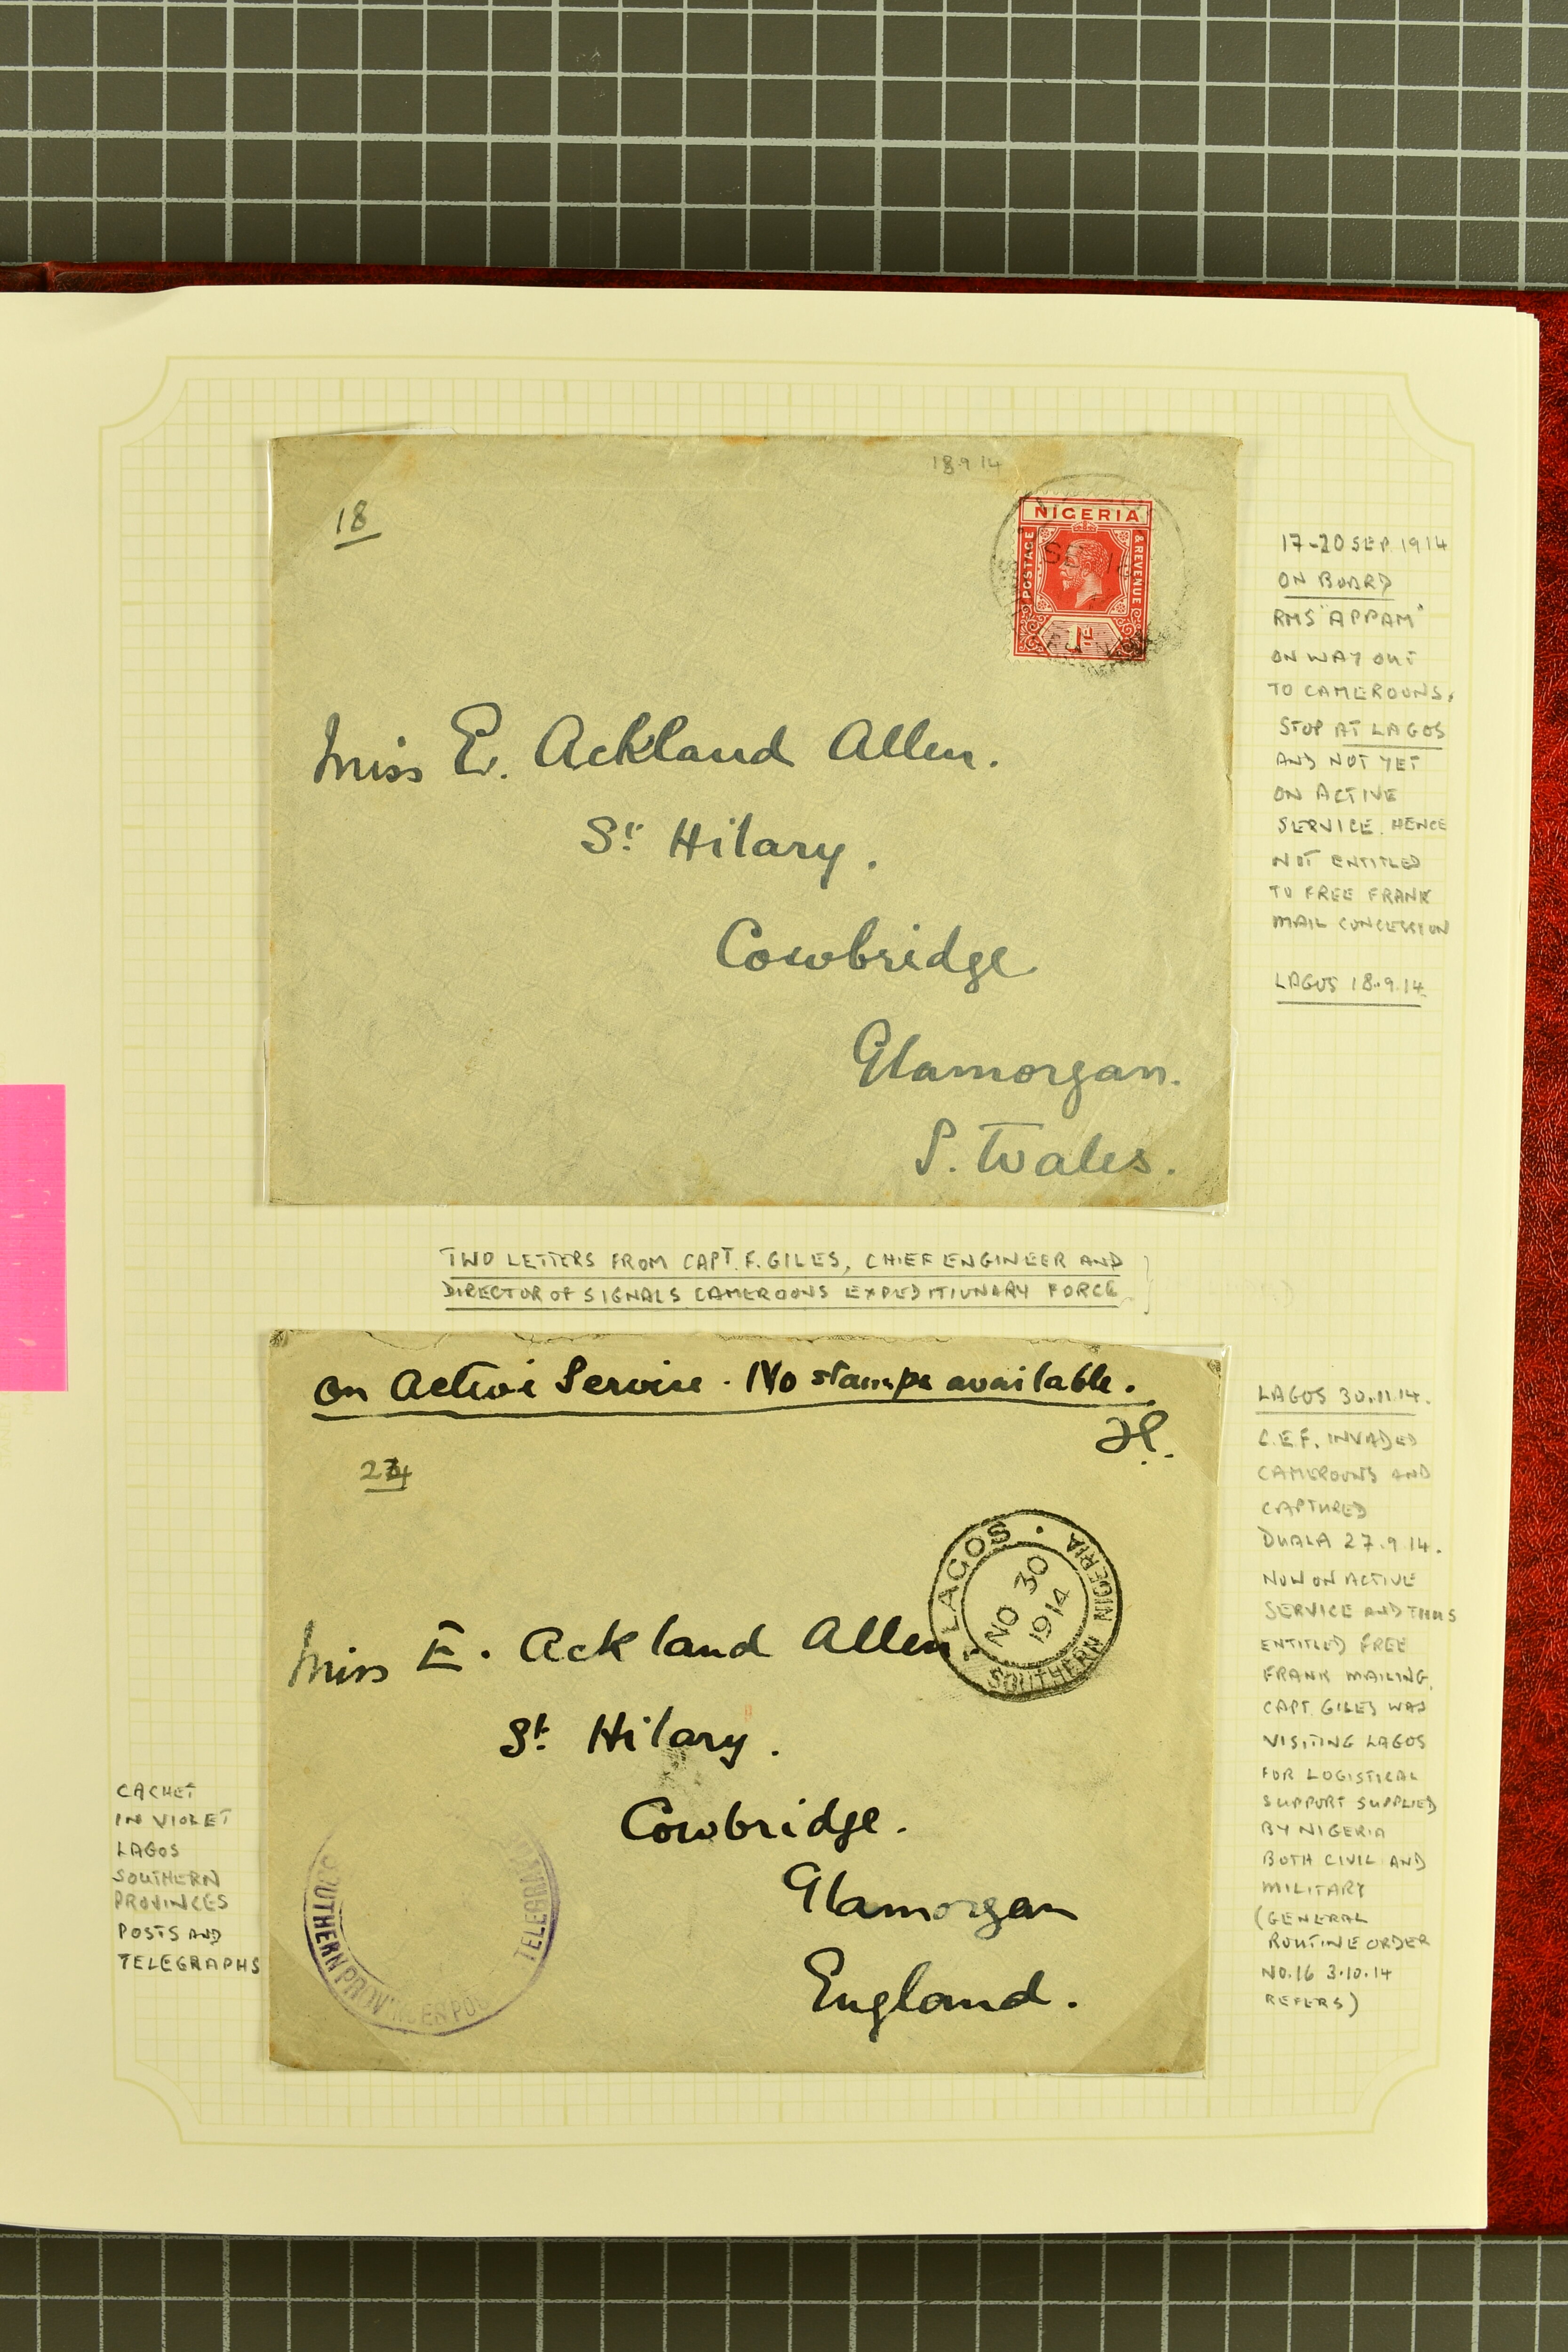 18.9.14
18
NIGERIA
POSTAGE
& REVENUE
1d
SE 18
Miss E. Ackland Allen.
St. Hilary.
Cowbridge
Glamorgan.
S. Wales.
17-20 SEP 1914
ON BOARD
RMS "APPAM"
ON WAY OUT
TO CAMEROONS,
STOP AT LAGOS
AND NOT YET
ON ACTIVE
SERVICE. HENCE
NOT ENTITLED
TO FREE FRANK
MAIL CONCESSION
LAGOS 18.9.14
TWO LETTERS FROM CAPT. F. GILES, CHIEF ENGINEER AND
DIRECTOR OF SIGNALS CAMEROONS EXPEDITIONARY FORCE
On Active Service. No stamps available.
LAGOS
SOUTHERN NIGERIA
NO 30
1914
Miss E. Ackland Allen.
St. Hilary.
Cowbridge.
Glamorgan
England.
SOUTHERN PROVINCES PO
TELEGRAP
CACHET
IN VIOLET
LAGOS
SOUTHERN
PROVINCES
POSTS AND
TELEGRAPHS
LAGOS 30.11.14.
C.E.F. INVADED
CAMEROONS AND
CAPTURED
DUALA 27.9.14.
NOW ON ACTIVE
SERVICE AND THUS
ENTITLED FREE
FRANK MAILING.
CAPT. GILES WAS
VISITING LAGOS
FOR LOGISTICAL
SUPPORT SUPPLIED
BY NIGERIA
BOTH CIVIL AND
MILITARY
(GENERAL
ROUTINE ORDER
NO.16 3.10.14
REFERS)